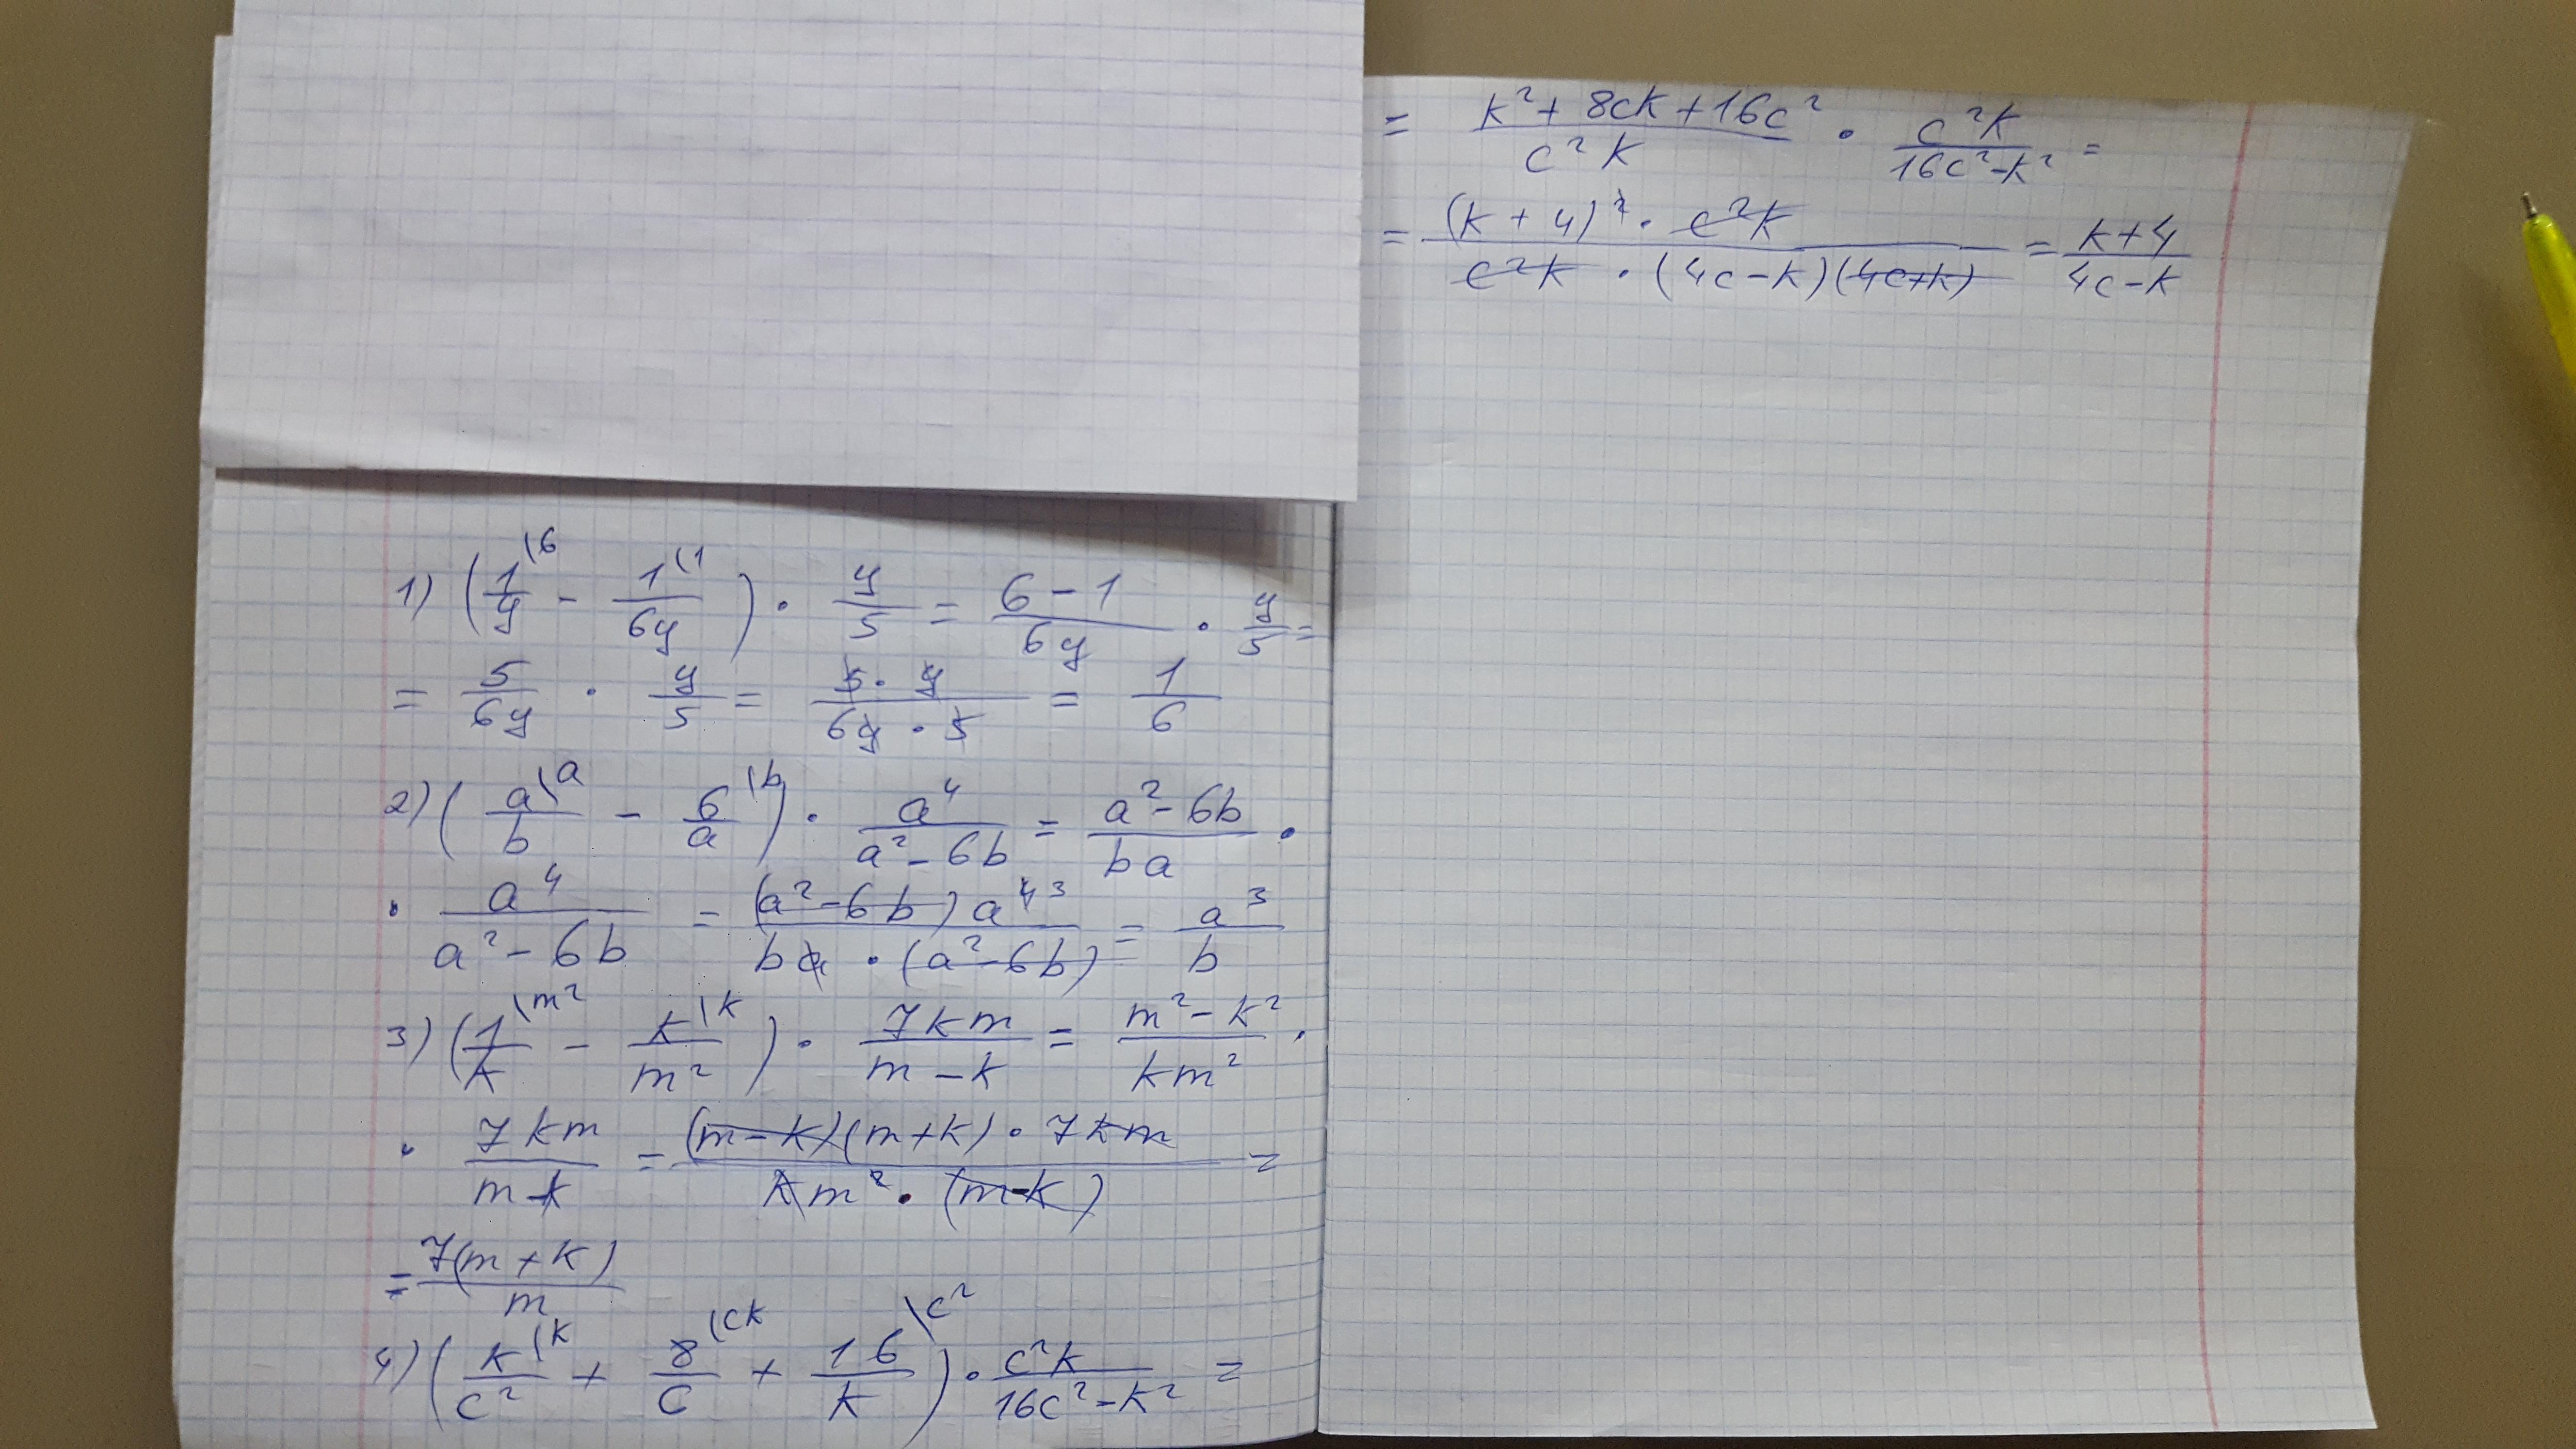 1) (1/y \6 - 1/6y \1) · y/5 = (6 - 1)/6y · y/5 =
= 5/6y · y/5 = (5 · y)/(6y · 5) = 1/6
2) (a/b \a - 6/a \b) · a⁴/(a² - 6b) = (a² - 6b)/ba ·
· a⁴/(a² - 6b) = ((a² - 6b) a⁴ ³)/(ba · (a² - 6b)) = a³/b
3) (1/k \m² - k/m² \k) · 7km/(m - k) = (m² - k²)/km² ·
· 7km/(m - k) = ((m - k)(m + k) · 7km)/(km² · (m - k)) =
= 7(m + k)/m
4) (k/c² \k + 8/c \ck + 16/k \c²) · c²k/(16c² - k²) =
= (k² + 8ck + 16c²)/c²k · c²k/(16c² - k²) =
= ((k + 4)² · c²k)/(c²k · (4c - k)(4c + k)) = (k + 4)/(4c - k)